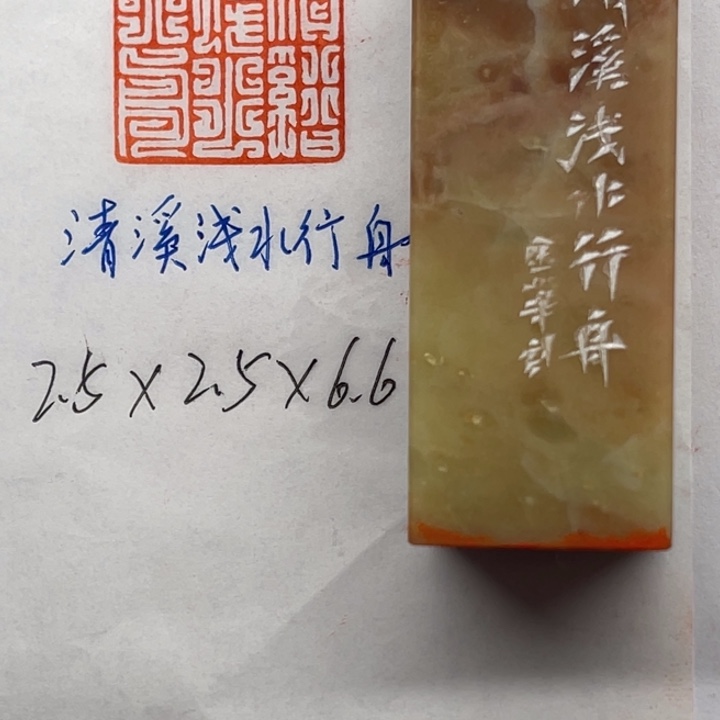 清溪浅水行舟
2.5×2.5×6.6
清溪浅水行舟